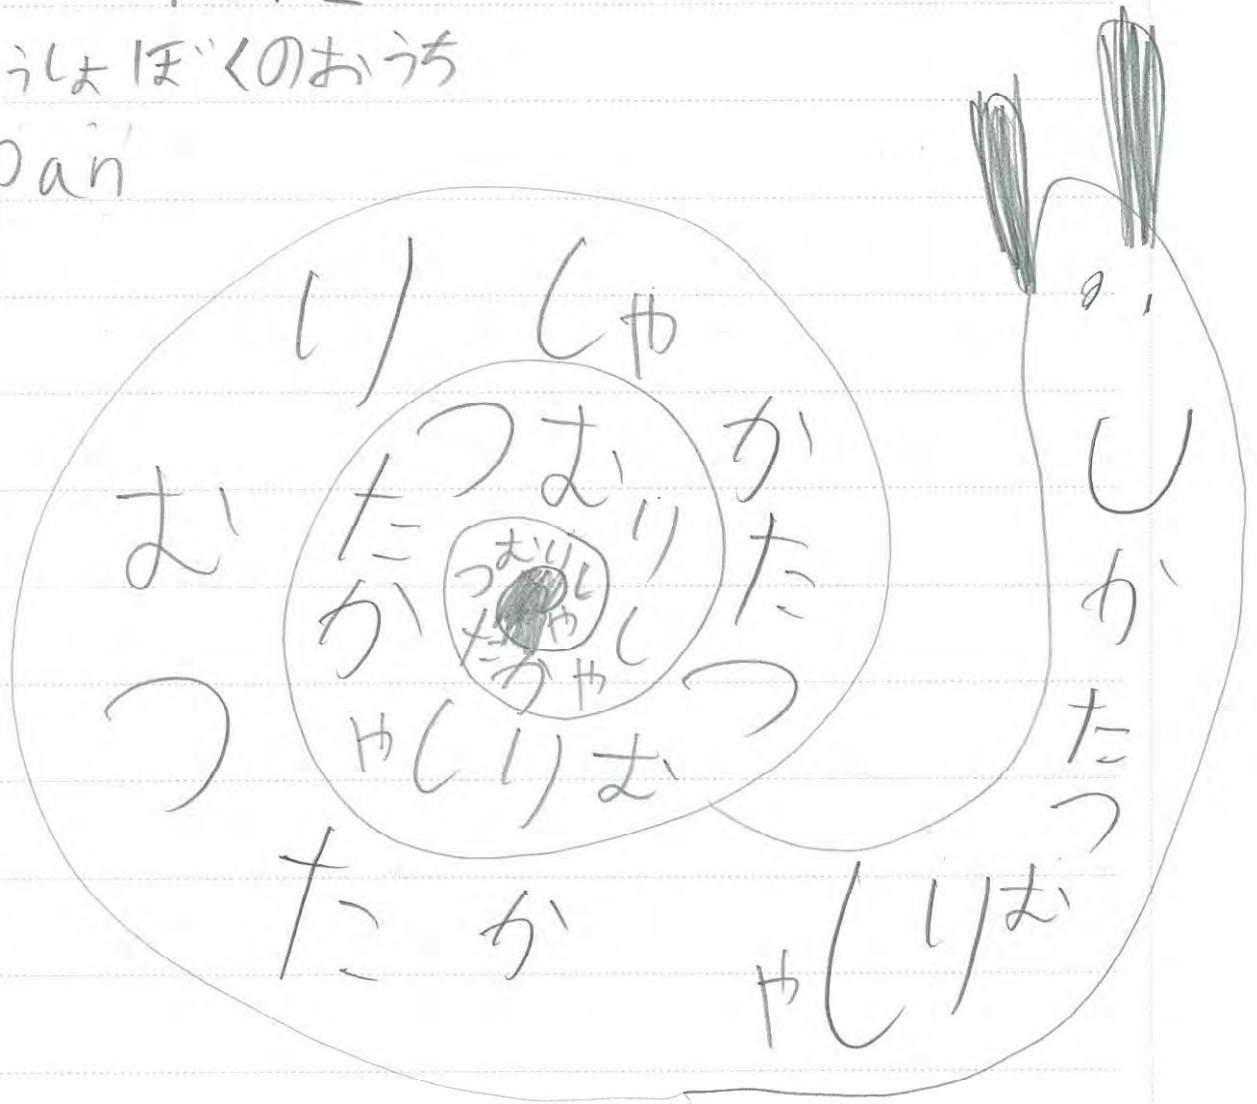 うしょぼくのおうち
pan
かたつむりしゃ
かたつむりしゃ
かたつむりしゃ
かたつむりしゃ
かたつむりしゃ